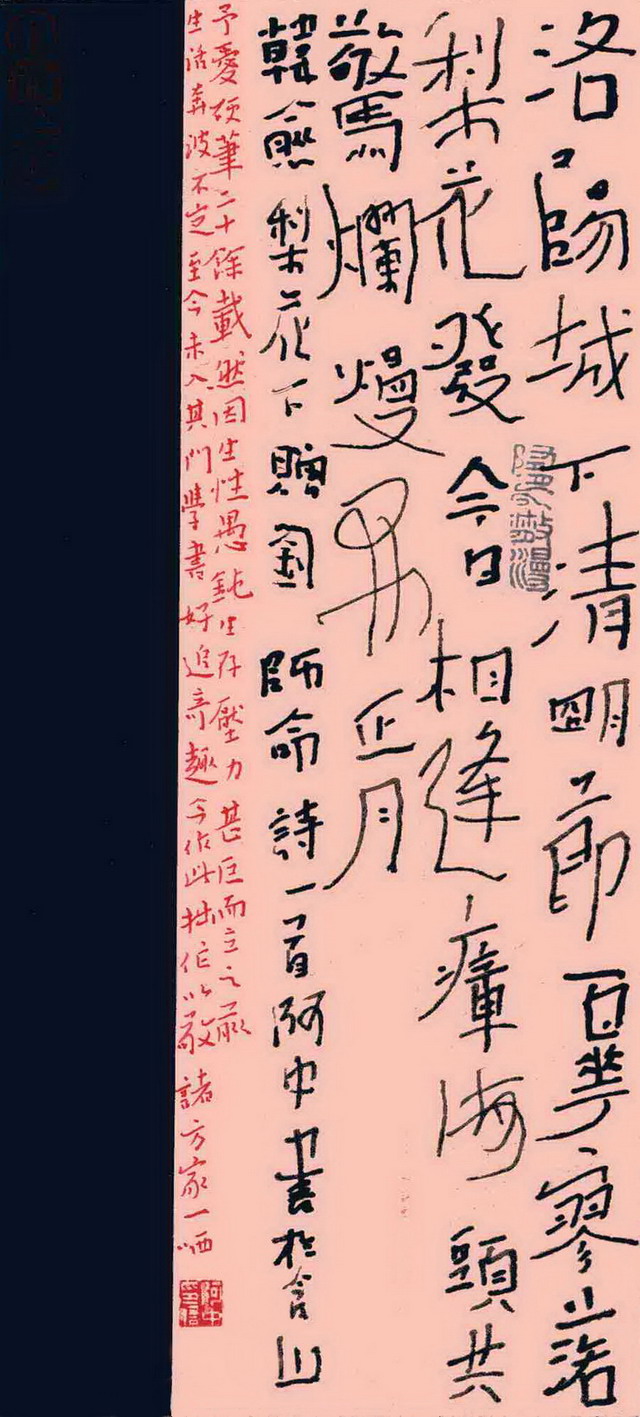 洛陽城下清明節百華寥落
梨花發今日相逢瘴海頭共
驚爛熳開正月
韓愈梨花下贈劉師命詩一首阿中書於含山
予愛硬筆二十餘載然因生性愚鈍生存壓力甚巨而立之歲
生活奔波不定至今未入其門學書好追奇趣今作此拙作以敬諸方家一哂
阿中印信